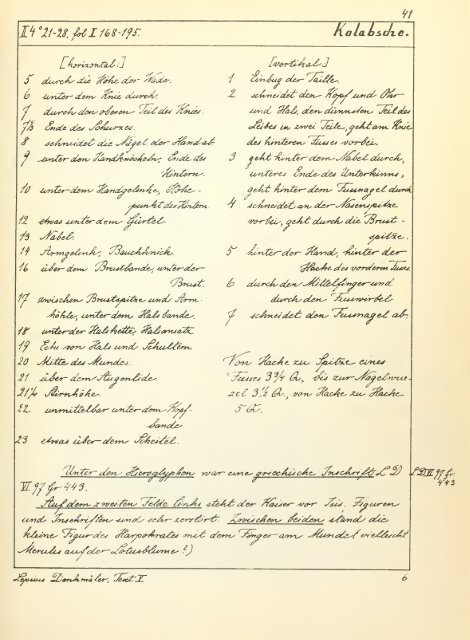 41
II 4° 21-28, fol I 168-195.
Kalabsche.
[horizontal.]
5 durch die Höhe der Wade.
6 unter dem Knie durch.
7 durch den oberen Teil des Knies.
7½ Ende des Schurzes.
8 schneidet die Nägel der Hand ab.
9 unter den Handknöcheln, Ende des
Hintern.
10 unter dem Handgelenke, Höhe-
punkt des Hintern
12 etwas unter dem Gürtel.
13 Nabel.
14 Armgelenk, Bauchknick.
16 über dem Brustbande, unter der
Brust.
17 zwischen Brustspitze und Arm-
höhle, unter dem Halsbande.
18 unter der Halskette, Halsansatz
19 Ecke von Hals und Schultern.
20 Mitte des Mundes.
21 über dem Augenlide.
21¼ Stirnhöhe
22. unmittelbar unter dem Kopf-
bande
23 etwas über dem Scheitel.
[vertikal.]
1 Einbug der Taille.
2 schneidet den Kopf und Ohr
und Hals, den dünnsten Teil des
Leibes in zwei Teile, geht am Knie
des hinteren Fusses vorbei.
3 geht hinter dem Nabel durch,
unteres Ende des Unterkinns,
geht hinter dem Fussnagel durch
4 schneidet an der Nasenspitze
vorbei, geht durch die Brust-
spitze.
5 hinter der Hand, hinter der
Hacke des vorderen Fusses.
6 durch den Mittelfinger und
durch den Fusswirbel
7 schneidet den Fussnagel ab.
Von Hacke zu Spitze eines
Fusses 3¾ Q., bis zur Nagelwur-
zel 3½ Q., von Hacke zu Hacke
5 Q.
Unter den Hieroglyphen war eine griechische Inschrift L D
LD VI 97 Gr
443
VI. 97 Gr 443.
Auf dem zweiten Felde links steht der Kaiser vor Isis. Figuren
und Inschriften sind sehr zerstört. Zwischen beiden stand die
kleine Figur des Harpokrates mit dem Finger am Munde (vielleicht
Merulis auf der Lotusblume?)
Lepsius Denkmäler, Text V.
6